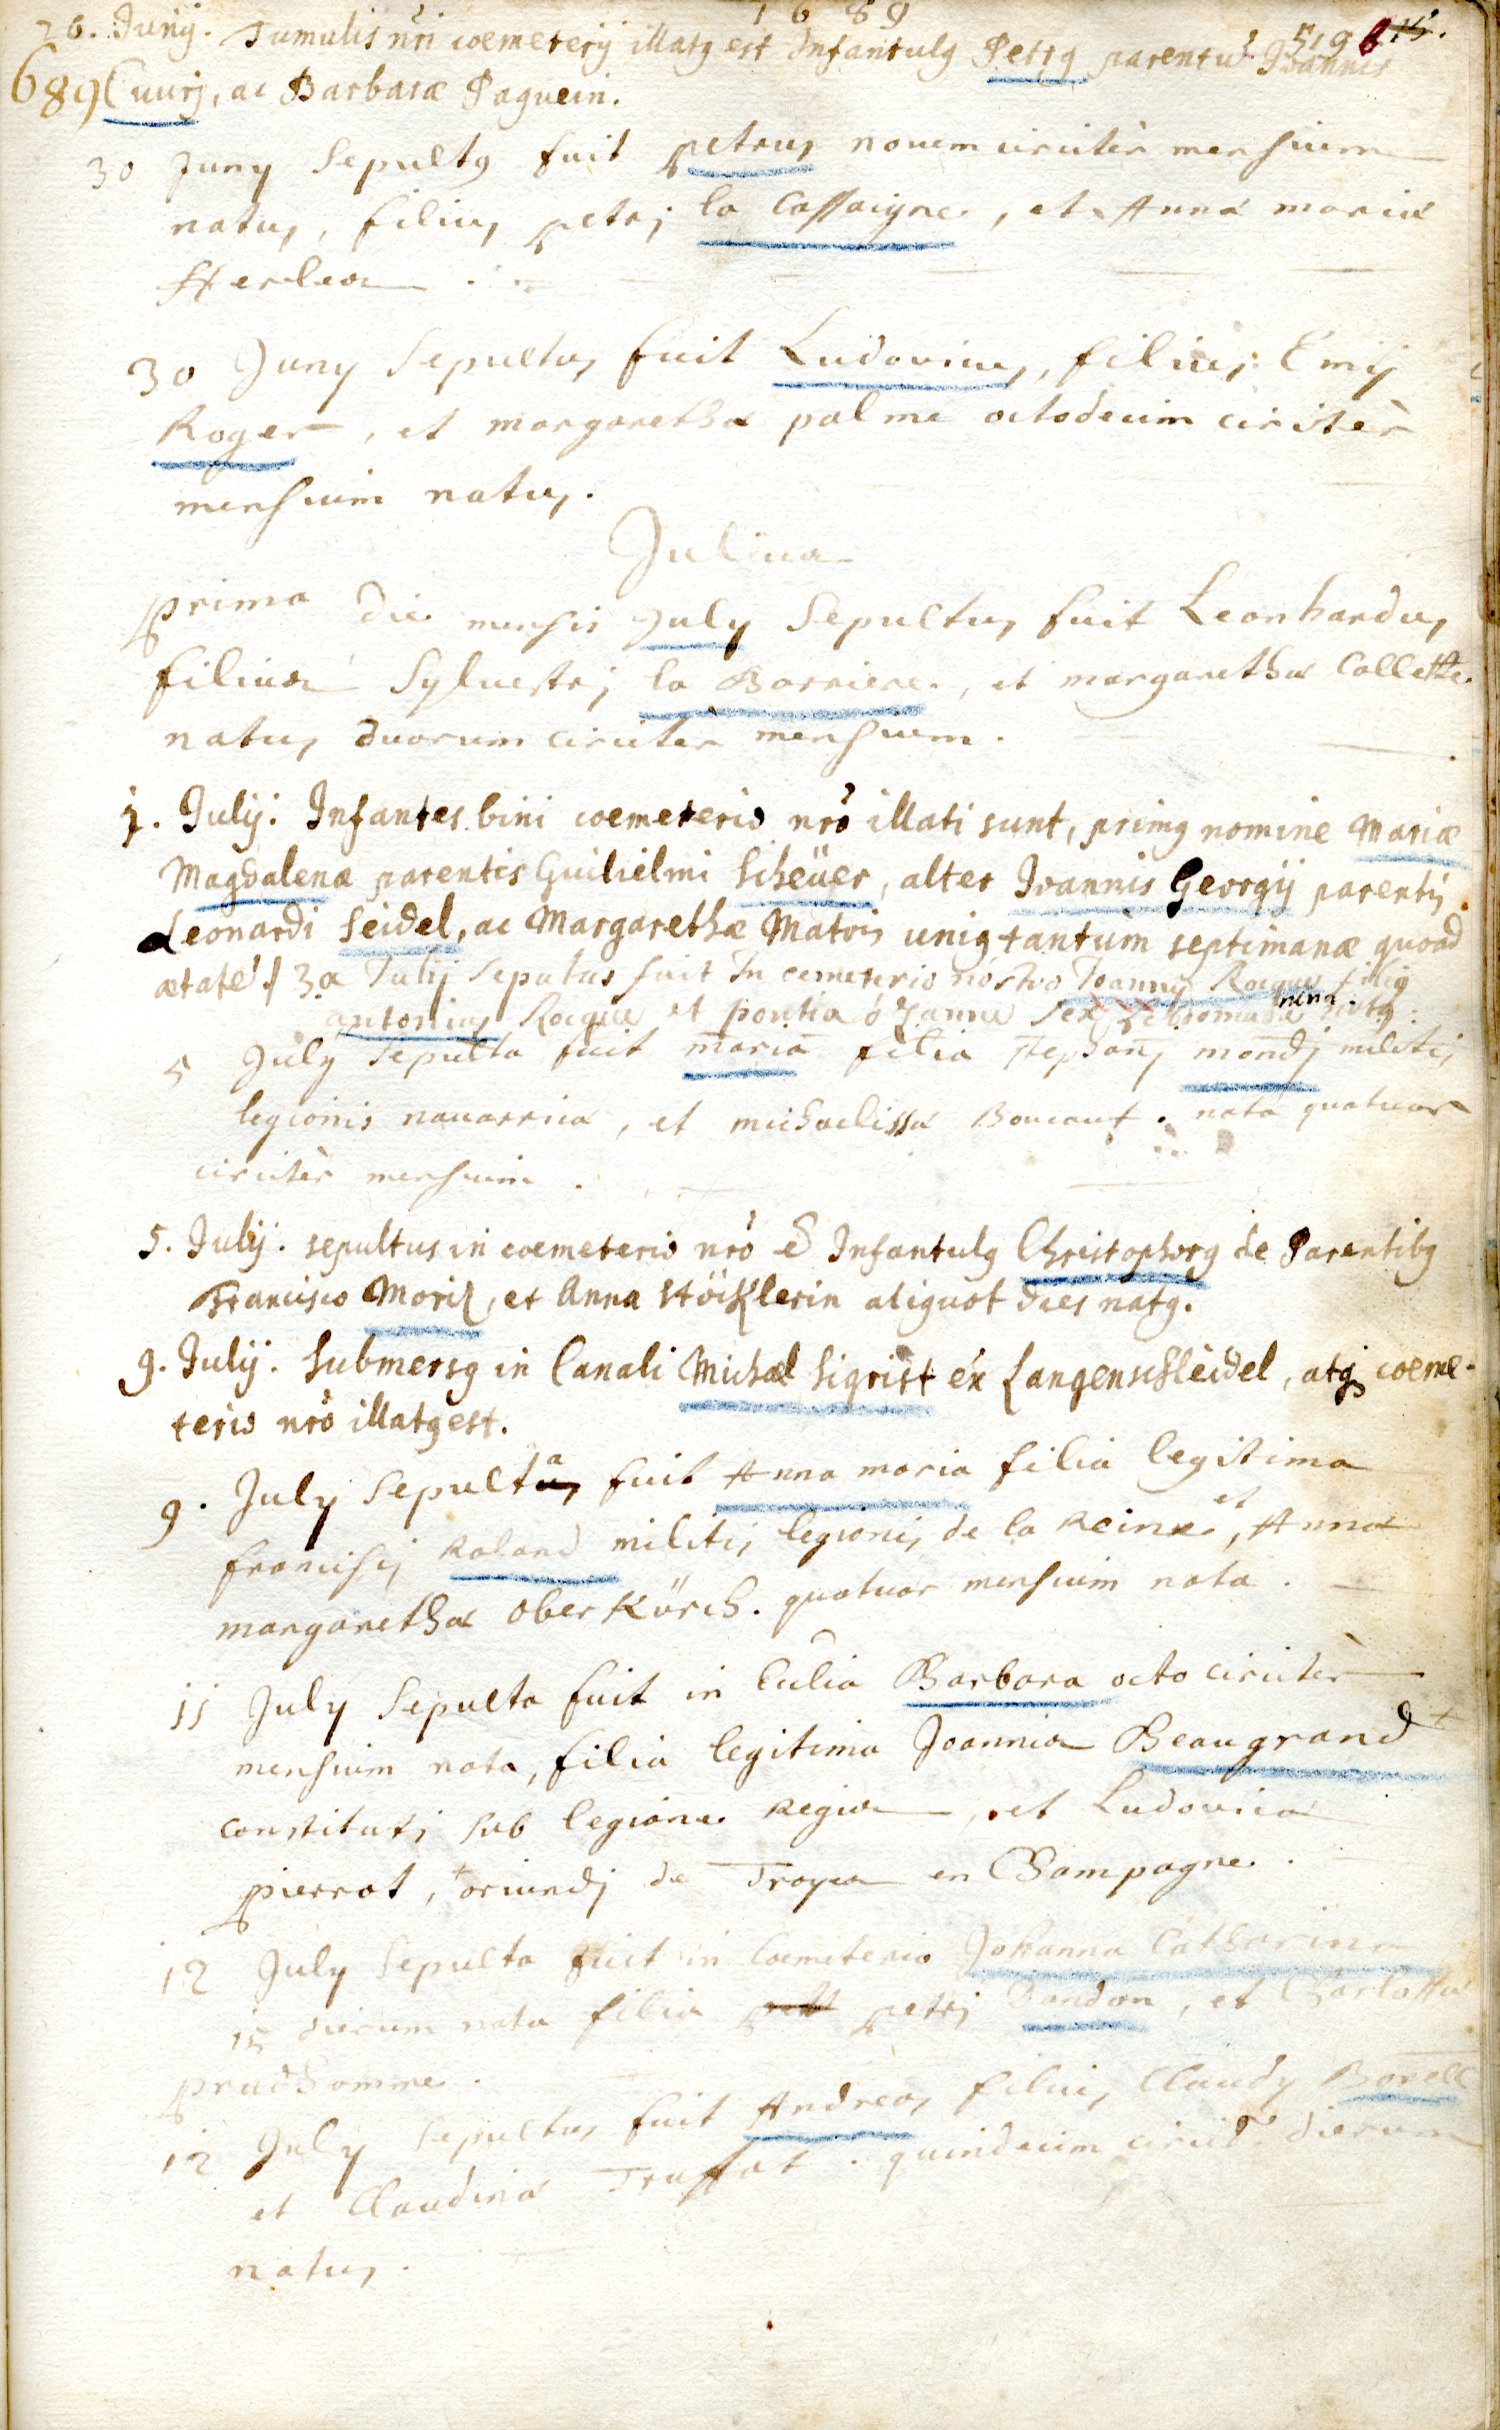 1689
519
26. Junij. Tumulis nri coemeterij illatq est Infantulq Petrq parentu Joannis
689 Cuurj, ac Barbaræ Paquein.
30 Juny Sepultq fuit petrus novem circiter mensium
natus, filius petrj la Cassaigne, et Anna maria
Herlea
30 Juny Sepultus fuit Ludovicus, filius Emij
Roger, et margaretha palme octodecim circiter
mensium natus.
Julius
prima die mensis July Sepultus fuit Leonhardus
filius Sylvestrj la Barriere, et margaretha Collette
natus duorum circiter mensium.
1. Julij. Infantes bini coemeterio nrō illati sunt, primq nomine Mariæ
Magdalenæ parentis Guilielmi Scheüer, alter Joannis Georgij parentis
Leonardi Seidel, ac Margarethæ Matris uniq tantum septimanæ quoad
ætate. 3a Julij Seputus fuit In cemeterio nostro Joannis Rocque filiq
antonius Rocque et pontia o Zanne Sex natq
5 July sepulta fuit maria filia stephanj mondj militis
legionis navarrica, et michaelissa Boucaut. nata quatuor
circiter mensium.
5. Julij. sepultus in coemeterio nrō ē Infantulq Christophorq de Parentibq
Francisco Moriz, et Anna Stöcklerin aliquot dies natq.
9. Julij. Submersq in Canali Michael Sigrist ex Langenschleidel, atq coeme-
terio nrō illatq est.
9. July Sepulta fuit Anna maria filia legitima
francisj Roland militis legionis de la Reine, et Anna
margaretha oberkürch. quatuor mensium nata.
11 July Sepulta fuit in Eulia Barbara octo circiter
mensium nata, filia legitima Joannis Beaugrand
constitutj sub legione Regia, et Ludovica
pierrot, + oriundj de Troyes en Champagne.
12 July Sepulta fuit in Coemeterio Johanna Catharina
15 dierum nata filia petrj Dandon, et Charlotta
prudhomme.
12 July Sepultus fuit Andreas filius Claudy Bonell
et Claudina Truffat. quindecim circit. dierum
natus.